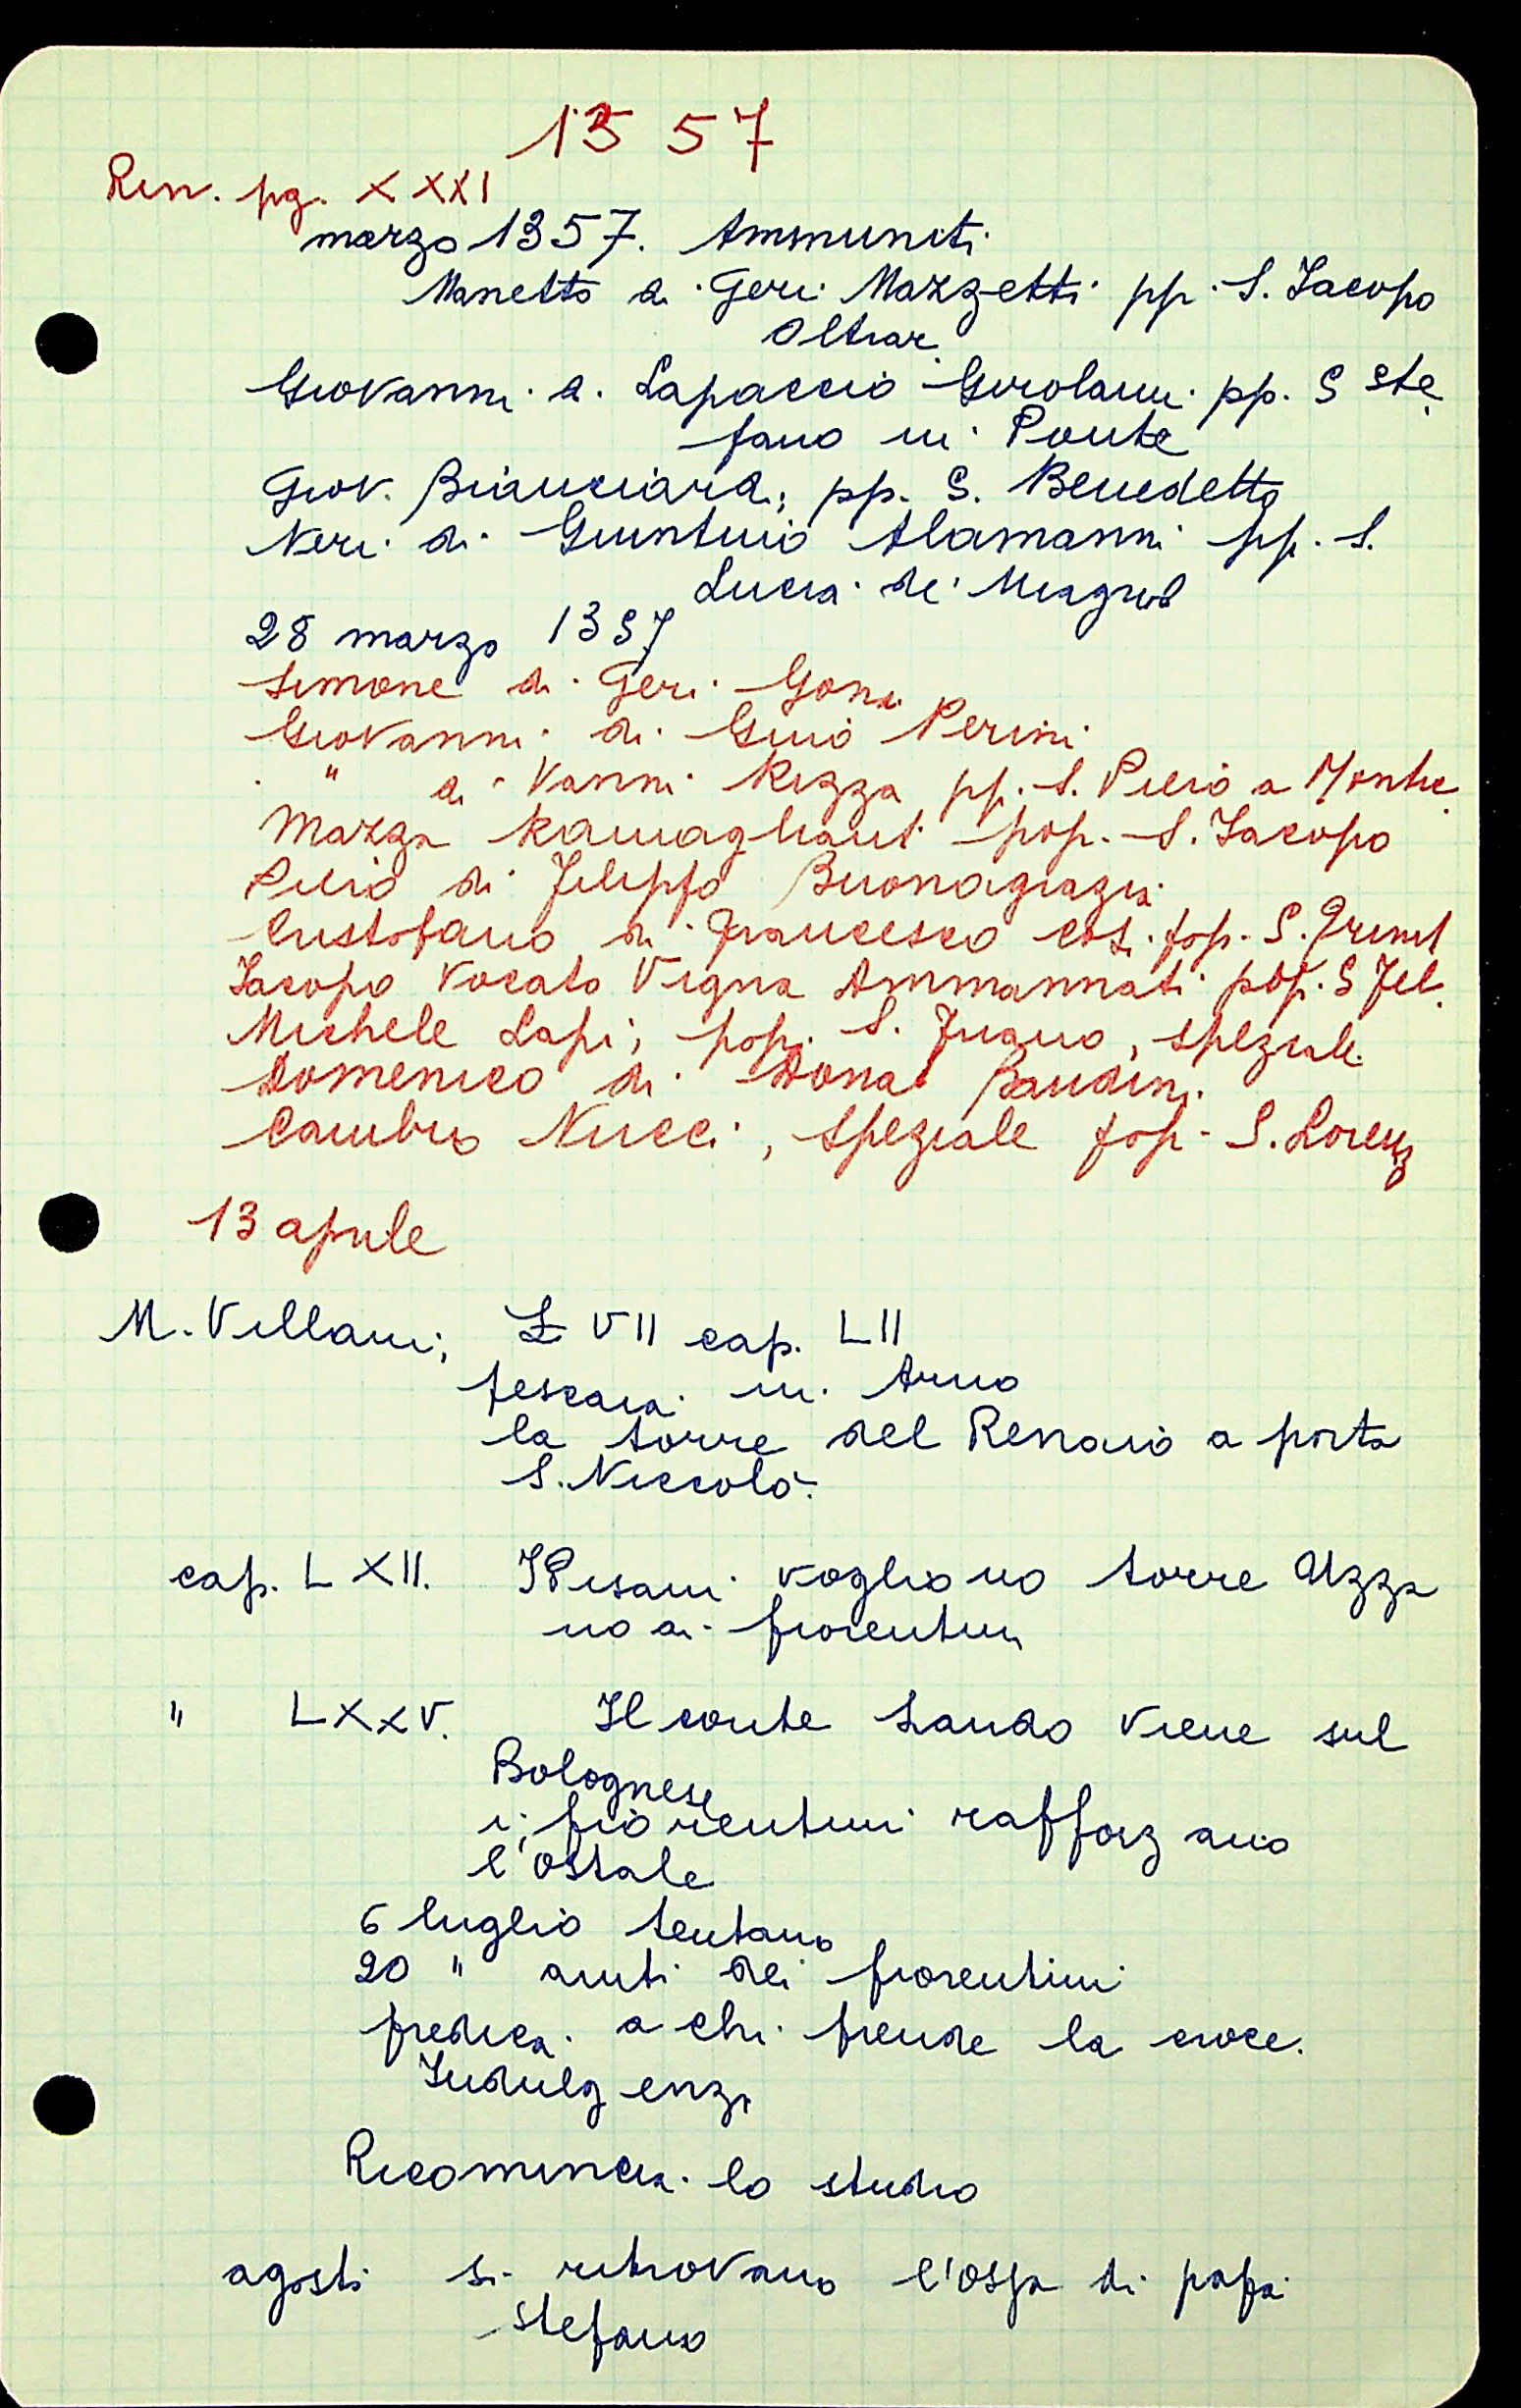 1357
Rin. pg. XXXI
marzo 1357. Ammuniti
Manetto di Geri Mazzetti pp. S. Jacopo
Oltrar.
Giovanni di Lapaccio Girolami pp. S Ste
fano in Ponte
Giov. Bianciardi, pp. S. Benedetto
Neri di Giuntino Alamanni pp. S.
Lucia de' Magnol
28 marzo 1357
Simone di Geri Gondi
Giovanni di Guió Perini
" di Vanni Rizza pp. S. Piero a Montic.
Mazza Ramagliant pop. S. Jacopo
Piero di Filippo Buonagrazia
Cristofano di Francesco Cos. pop. S.
Jacopo Vocato Vigna Ammannati pop. S Fel.
Michele Lapi, pop. S. Friano, speziale
Domenico di Donat Bandini
Cambio Nucci, speziale pop. S. Lorenz
13 aprile
M. Villani, L VII cap. LII
pescaia in Arno
la torre del Renaio a porta
S. Niccolò.
cap. LXII. I Pisani vogliono torre Uzza
no ai fiorentini
" LXXV. Il conte Lando viene sul
Bolognese
i fiorentini rafforzano
l'ostale
6 luglio tentano
20 " aiuti dei fiorentini
predica a chi prende la croce.
Indulgenzi
Ricomincia lo studio
agosti si ritrovano l'ossa di papa
Stefano